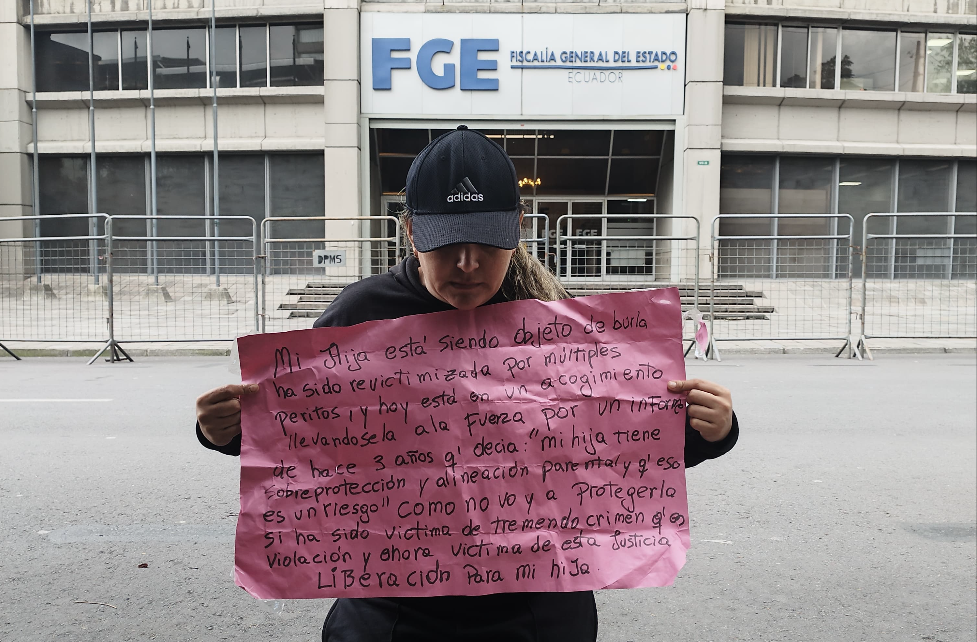 FGE
FISCALÍA GENERAL DEL ESTADO
ECUADOR
adidas
FGE
FGE
DPMS
Mi Hija está siendo objeto de burla
ha sido revictimizada por múltiples
peritos , y hoy está en un acogimiento
"llevandosela ala fuerza por un informe
de hace 3 años q' decia: "mi hija tiene
sobreprotección y alineación parental y q' eso
es un riesgo" como no voy a protegerla
si ha sido victima de tremendo crimen q' es
violación y ahora victima de esta Justicia
LiBeración Para mi hija.